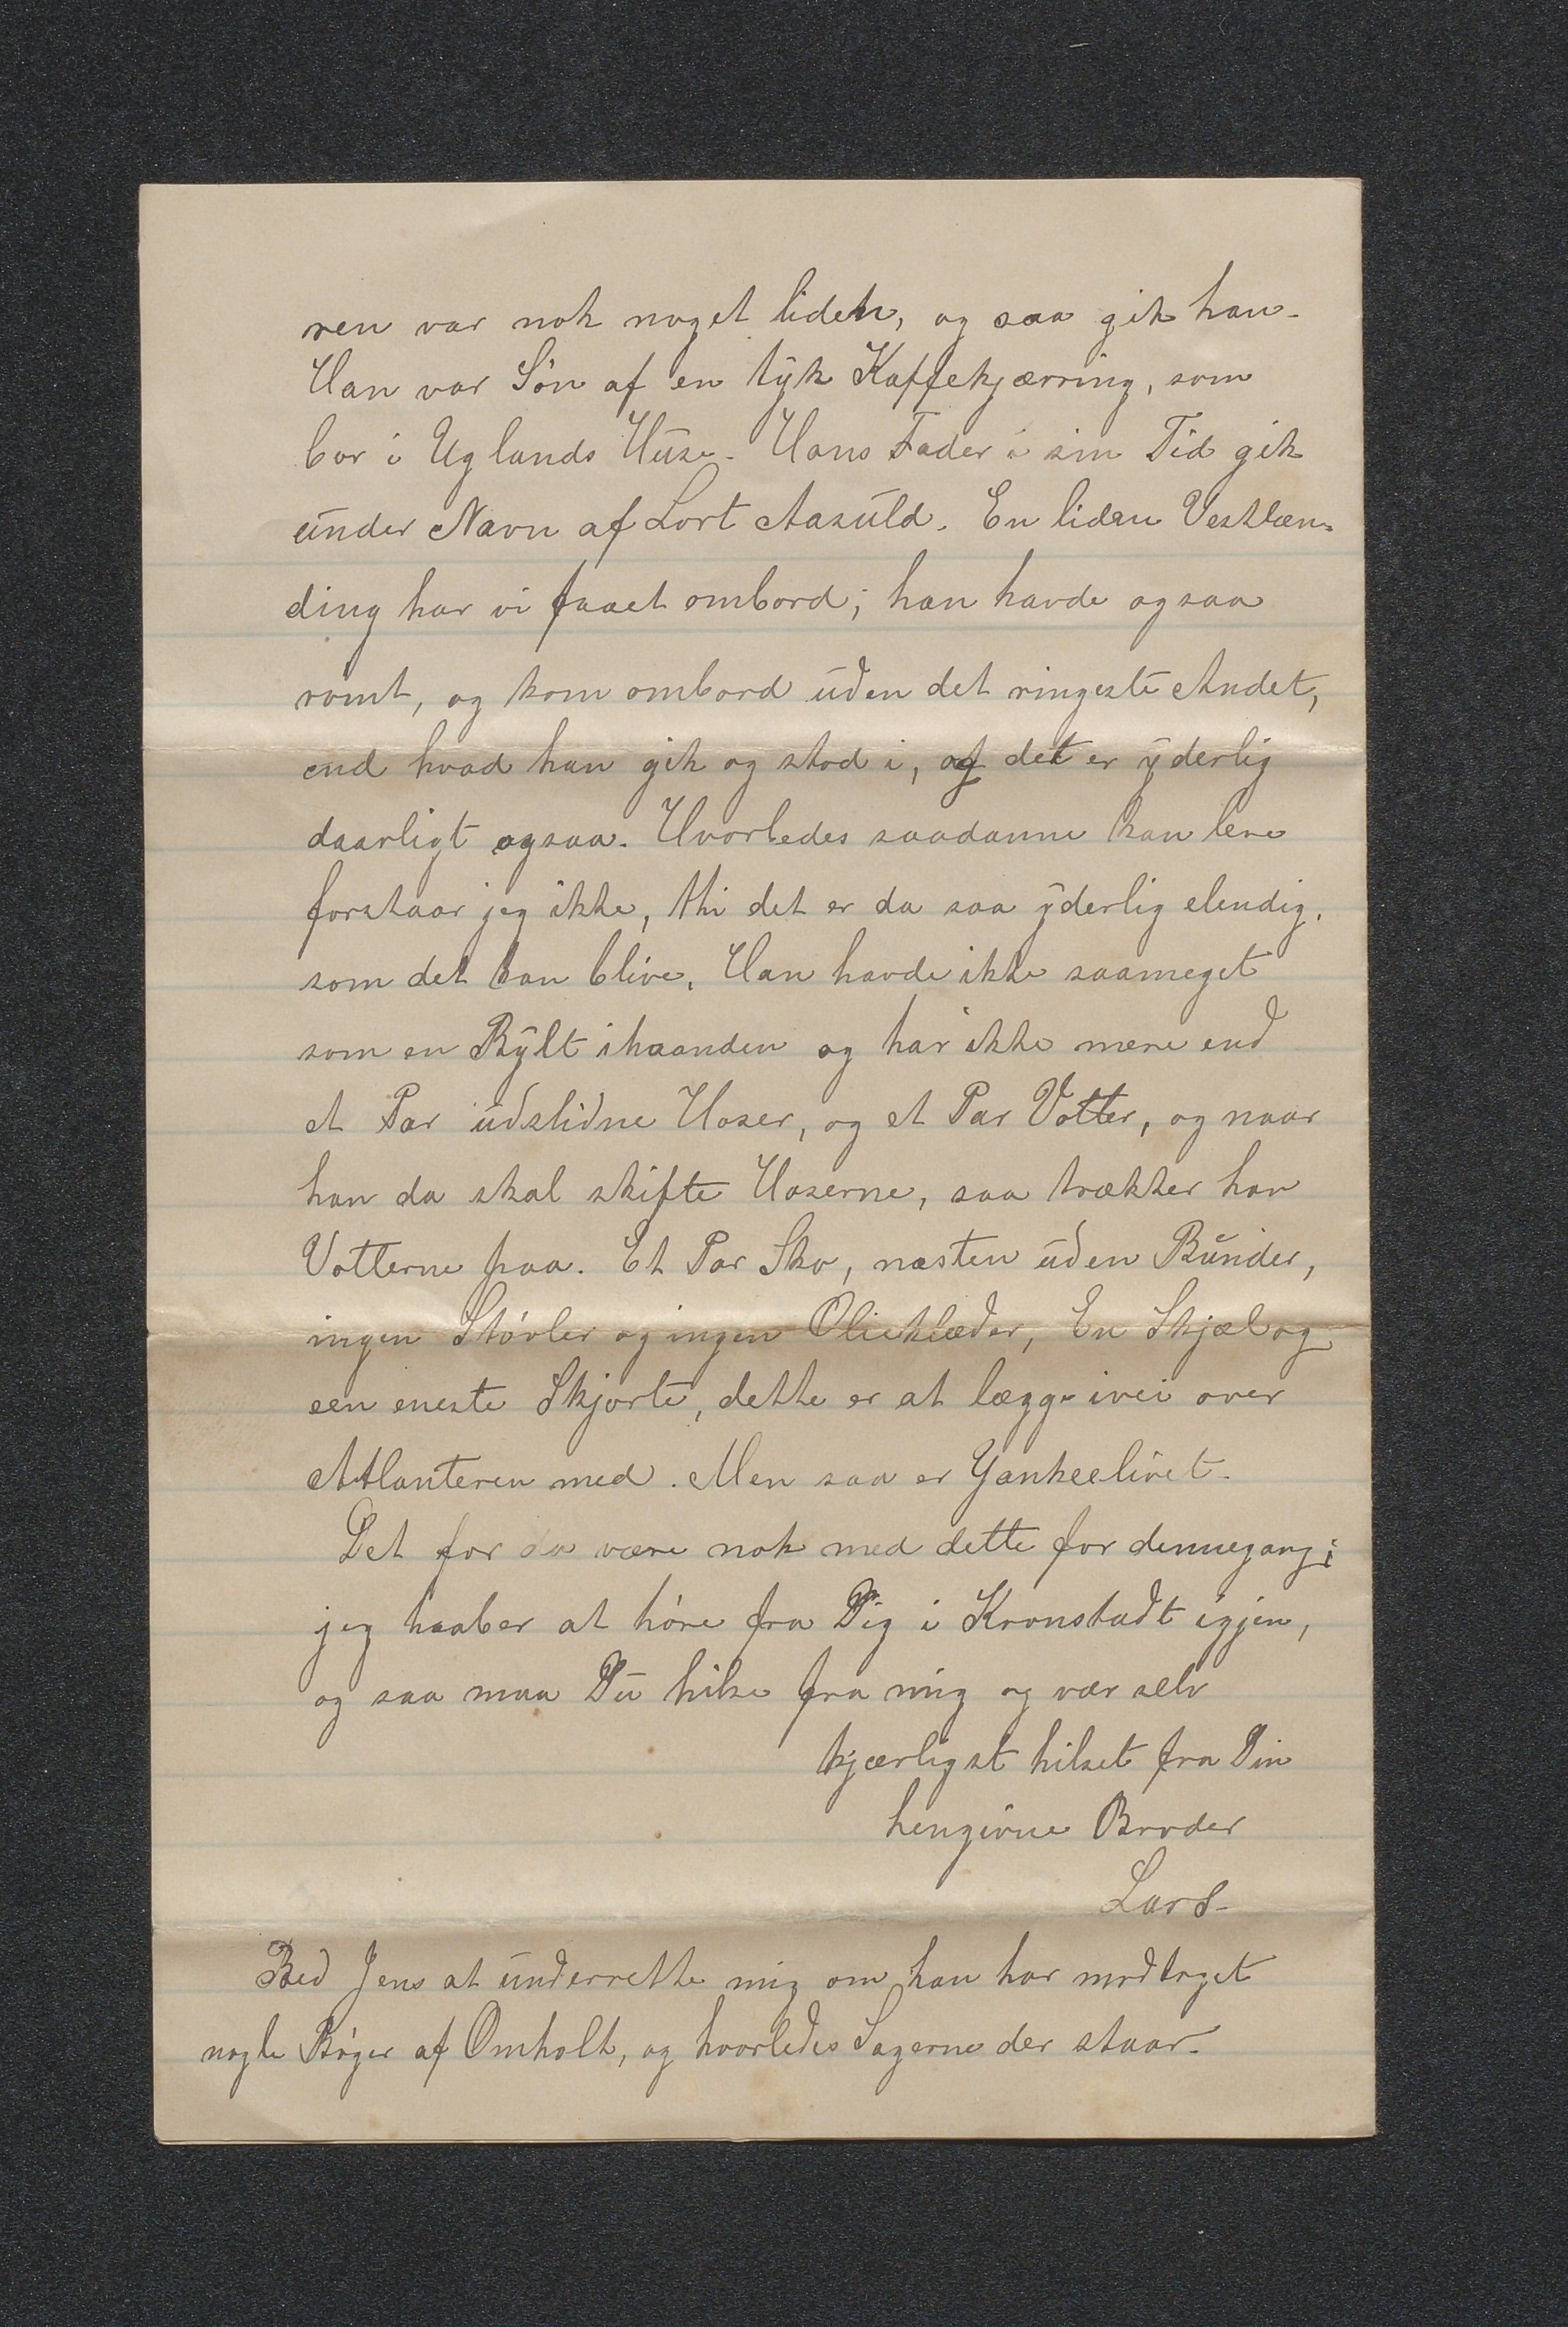 ren var nok noget liden, og saa gik han.
Han var Søn af en tyk Kaffekjærring, som
bor i Uglands Huse. Hans Fader i sin Tid gik
under Navn af Lort Aasuld. En liden Vestlæn-
ding har vi faaet ombord; han havde ogsaa
rømt, og kom ombord uden det ringeste Andet,
end hvad han gik og stod i, og det er yderlig
daarligt ogsaa. Hvorledes saadanne kan leve
forstaar jeg ikke, thi det er da saa yderlig elendig.
som det kan blive. Han havde ikke saameget
som en Bylt ihaanden og har ikke mere end
et Par udslidne Hoser, og et Par Votter, og naar
han da skal skifte Hoserne, saa trækker han
Votterne paa. Et Par Sko, næsten uden Bunder,
ingen Støvler og ingen Olieklæder, En Skjæl og
een eneste Skjorte, dette er at lægge ivei over
Atlanteren med. Men saa er Yankeelivet.
Det for da være nok med dette for dennegang;
jeg haaber at høre fra Dig i Kronstadt igjen,
og saa maa Du hilse fra mig og vær selv
kjærligst hilset fra Din
hengivne Broder
Lars.
Bed Jens at underrette mig om han har modtaget
nogle Bøger af Omholt, og hvorledes Sagerne der staar.